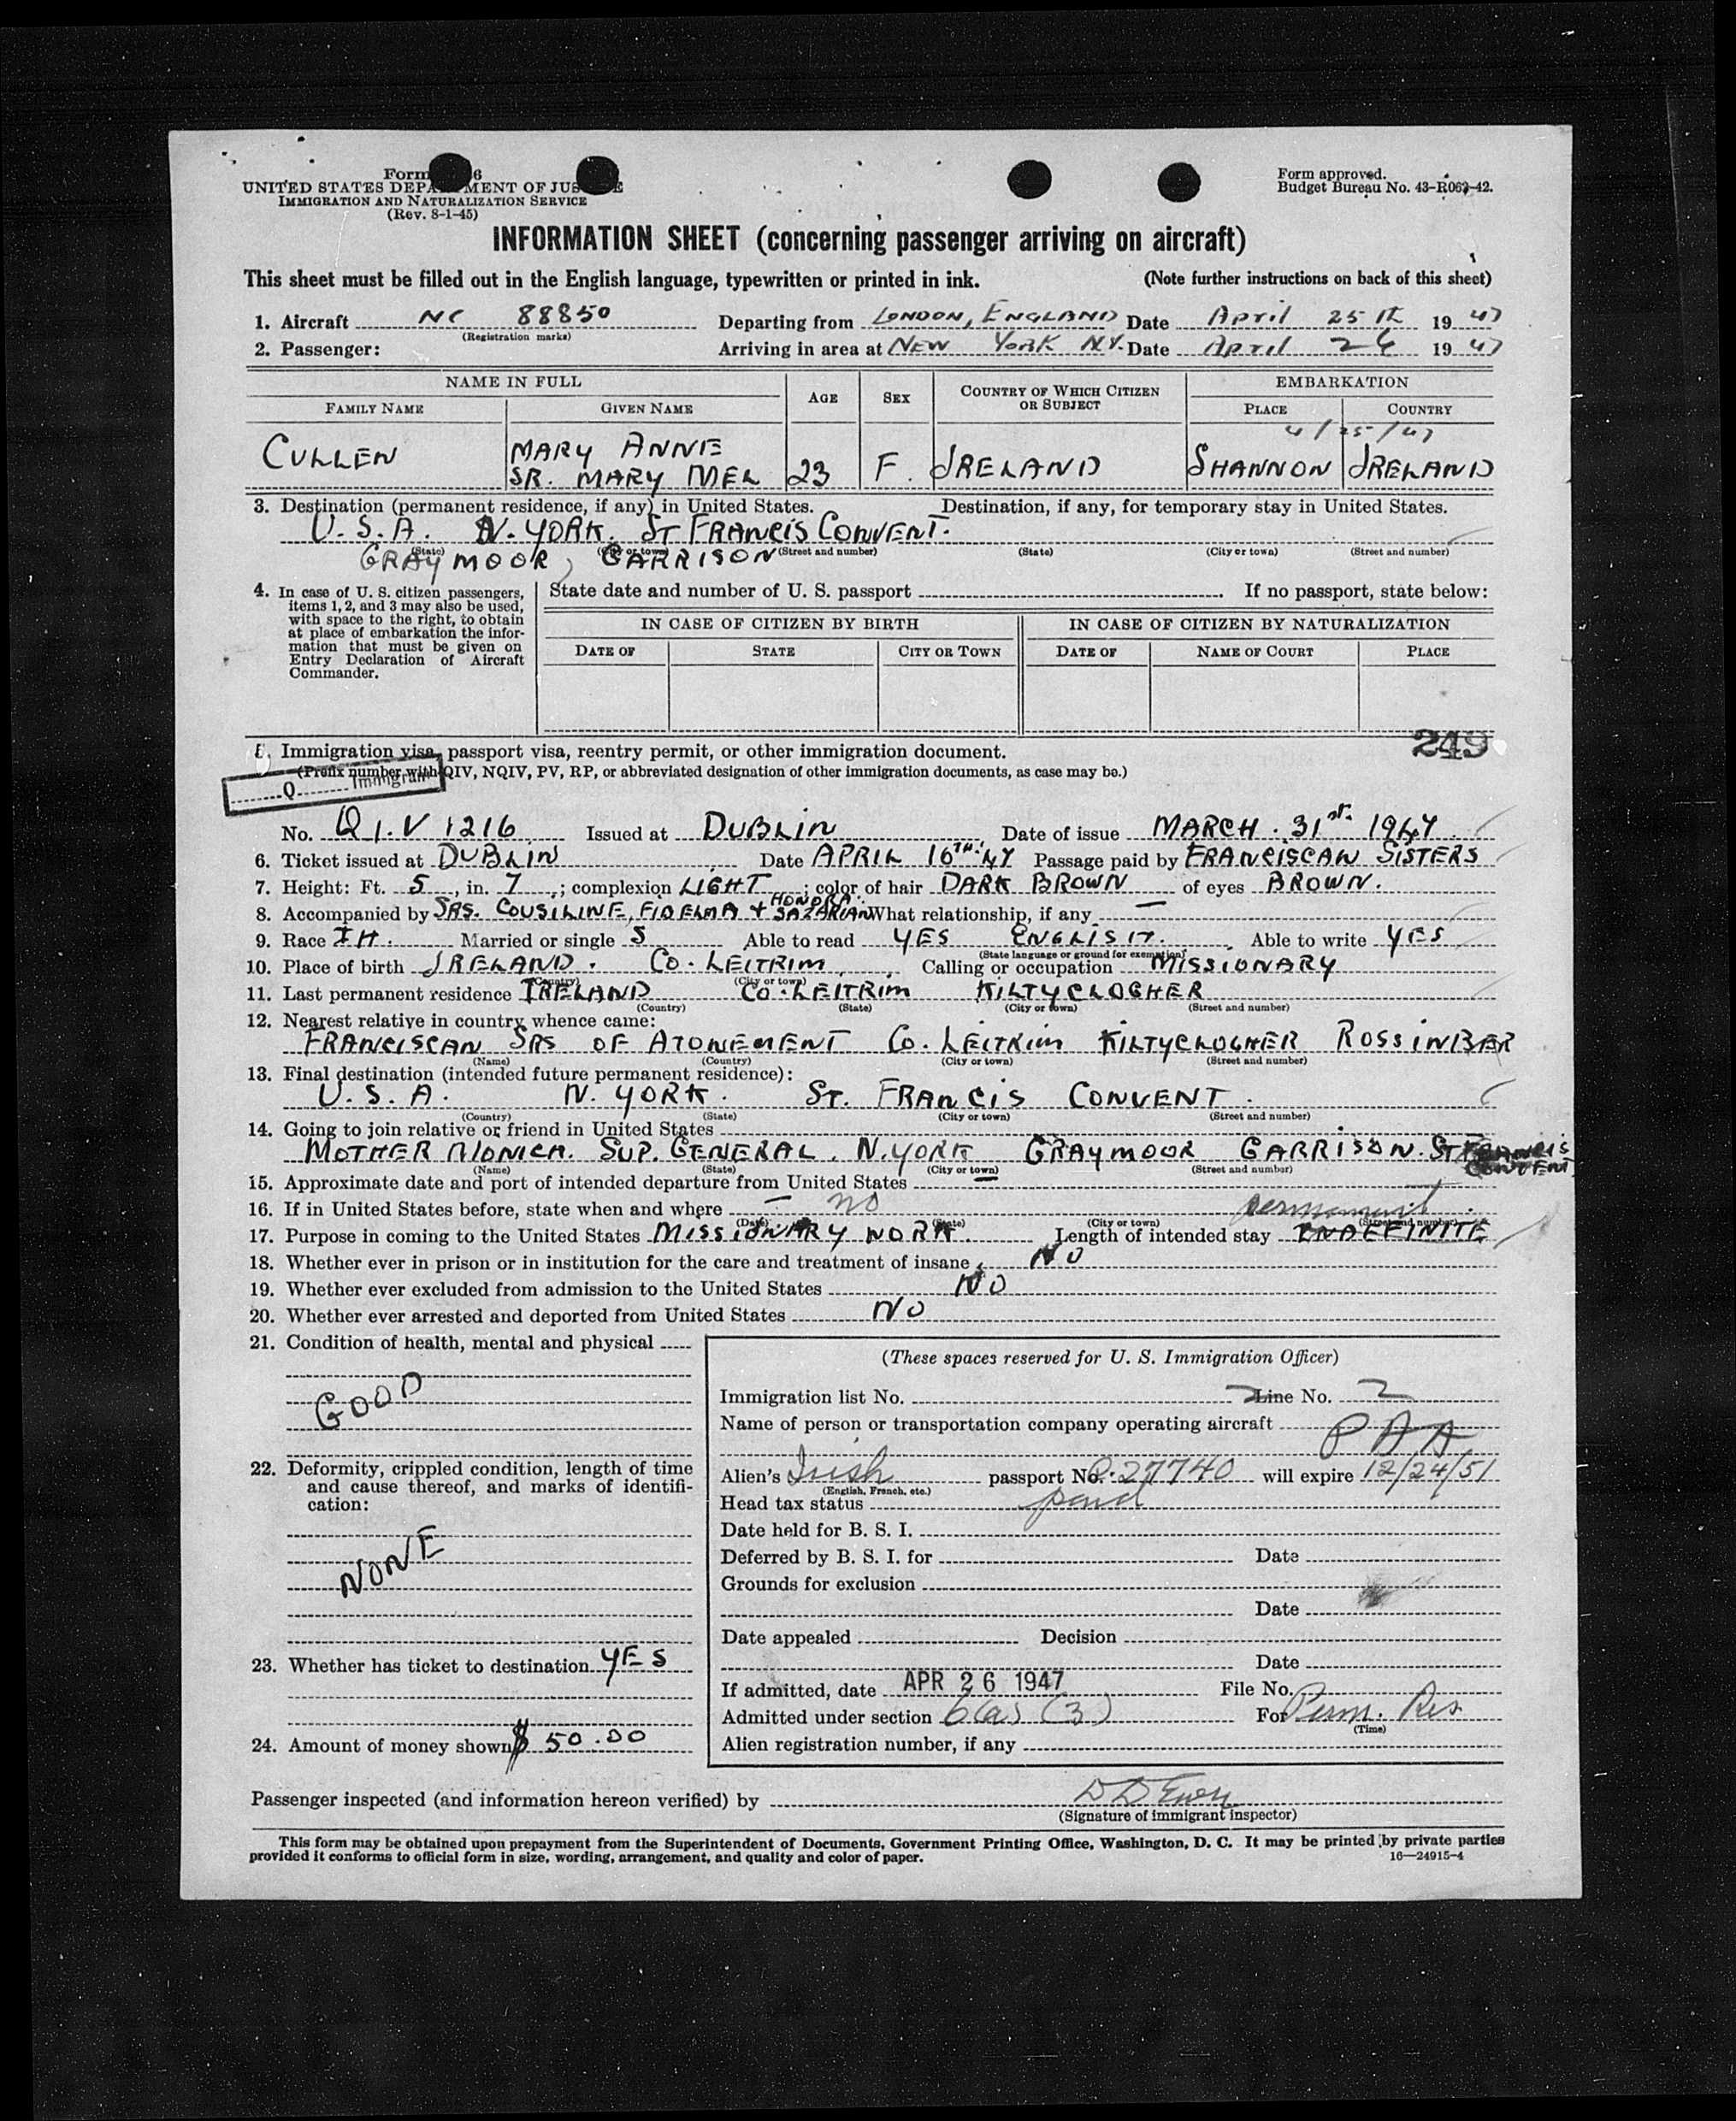 Form 6
UNITED STATES DEPARTMENT OF JUSTICE
IMMIGRATION AND NATURALIZATION SERVICE
(Rev. 8-1-45)
Form approved.
Budget Bureau No. 43-R063-42.
INFORMATION SHEET (concerning passenger arriving on aircraft)
This sheet must be filled out in the English language, typewritten or printed in ink. (Note further instructions on back of this sheet)
1. Aircraft NC 88850 Departing from LONDON, ENGLAND Date April 25th 1947
(Registration marks)
2. Passenger: Arriving in area at NEW YORK N.Y. Date April 26 1947
NAME IN FULL AGE SEX COUNTRY OF WHICH CITIZEN OR SUBJECT EMBARKATION
FAMILY NAME GIVEN NAME PLACE COUNTRY
4/25/47
CULLEN MARY ANNE
SR. MARY MEL 23 F. IRELAND SHANNON IRELAND
3. Destination (permanent residence, if any) in United States. Destination, if any, for temporary stay in United States.
U.S.A. N. YORK. ST FRANCIS CONVENT.
(State) (City or town) (Street and number) (State) (City or town) (Street and number)
GRAYMOOR, GARRISON
4. In case of U. S. citizen passengers, items 1, 2, and 3 may also be used, with space to the right, to obtain at place of embarkation the information that must be given on Entry Declaration of Aircraft Commander.
State date and number of U. S. passport . If no passport, state below:
IN CASE OF CITIZEN BY BIRTH IN CASE OF CITIZEN BY NATURALIZATION
DATE OF STATE CITY OR TOWN DATE OF NAME OF COURT PLACE
249
5. Immigration visa, passport visa, reentry permit, or other immigration document.
(Prefix number with QIV, NQIV, PV, RP, or abbreviated designation of other immigration documents, as case may be.)
Q Immigrant
No. Q I.V 1216 Issued at DUBLIN Date of issue MARCH. 31st. 1947.
6. Ticket issued at DUBLIN Date APRIL 16TH. 47 Passage paid by FRANCISCAN SISTERS
7. Height: Ft. 5, in. 7; complexion LIGHT; color of hair DARK BROWN of eyes BROWN.
HONORA
8. Accompanied by SRS. COUSILINE, FIDELMA + SAZARIAN What relationship, if any —
9. Race IH. Married or single S Able to read YES ENGLISH. Able to write YES
(State language or ground for exemption)
10. Place of birth IRELAND. CO. LEITRIM. Calling or occupation MISSIONARY
(Country) (City or town)
11. Last permanent residence IRELAND CO. LEITRIM KILTYCLOGHER
(Country) (State) (City or town) (Street and number)
12. Nearest relative in country whence came:
FRANCISCAN SRS OF ATONEMENT CO. LEITRIM KILTYCLOGHER ROSSINBER
(Name) (Country) (City or town) (Street and number)
13. Final destination (intended future permanent residence):
U.S.A. N. YORK. ST. FRANCIS CONVENT.
(Country) (State) (City or town) (Street and number)
14. Going to join relative or friend in United States
MOTHER MONICA. SUP. GENERAL. N. YORK GRAYMOOR GARRISON. ST FRANCIS CONVENT
(Name) (State) (City or town) (Street and number)
15. Approximate date and port of intended departure from United States —
16. If in United States before, state when and where — no permanent
(Date) (State) (City or town) (Street and number)
17. Purpose in coming to the United States MISSIONARY WORK. Length of intended stay INDEFINITE
18. Whether ever in prison or in institution for the care and treatment of insane NO
19. Whether ever excluded from admission to the United States NO
20. Whether ever arrested and deported from United States NO
21. Condition of health, mental and physical
GOOD
22. Deformity, crippled condition, length of time and cause thereof, and marks of identification:
NONE
23. Whether has ticket to destination YES
24. Amount of money shown $ 50.00
(These spaces reserved for U. S. Immigration Officer)
Immigration list No. 2 Line No. 2
Name of person or transportation company operating aircraft
PAA
Alien's Irish passport No. P.27740 will expire 12/24/51
(English, French, etc.)
Head tax status paid
Date held for B. S. I.
Deferred by B. S. I. for Date
Grounds for exclusion
Date
Date appealed Decision
Date
If admitted, date APR 26 1947 File No.
Admitted under section 6(a)(3) For Perm. Res.
(Time)
Alien registration number, if any
Passenger inspected (and information hereon verified) by
(Signature of immigrant inspector)
This form may be obtained upon prepayment from the Superintendent of Documents, Government Printing Office, Washington, D. C. It may be printed by private parties
provided it conforms to official form in size, wording, arrangement, and quality and color of paper. 16—24915-4